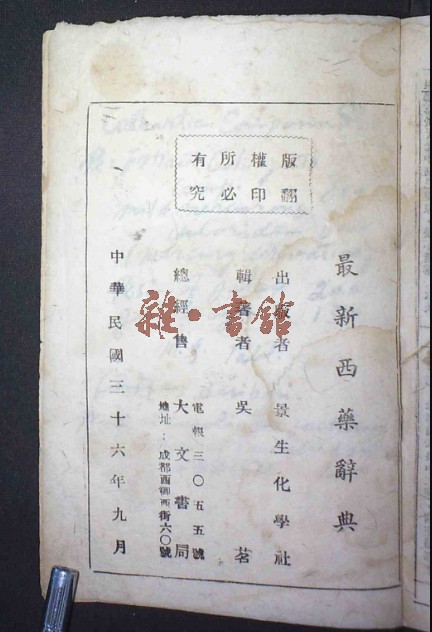 版權所有
翻印必究
最新西藥辭典
出版者 景生化學社
輯著者 吳茗
總經售 大文書局
電報三〇五五號
地址：成都西御西街六〇號
中華民國三十六年九月
雜·書館